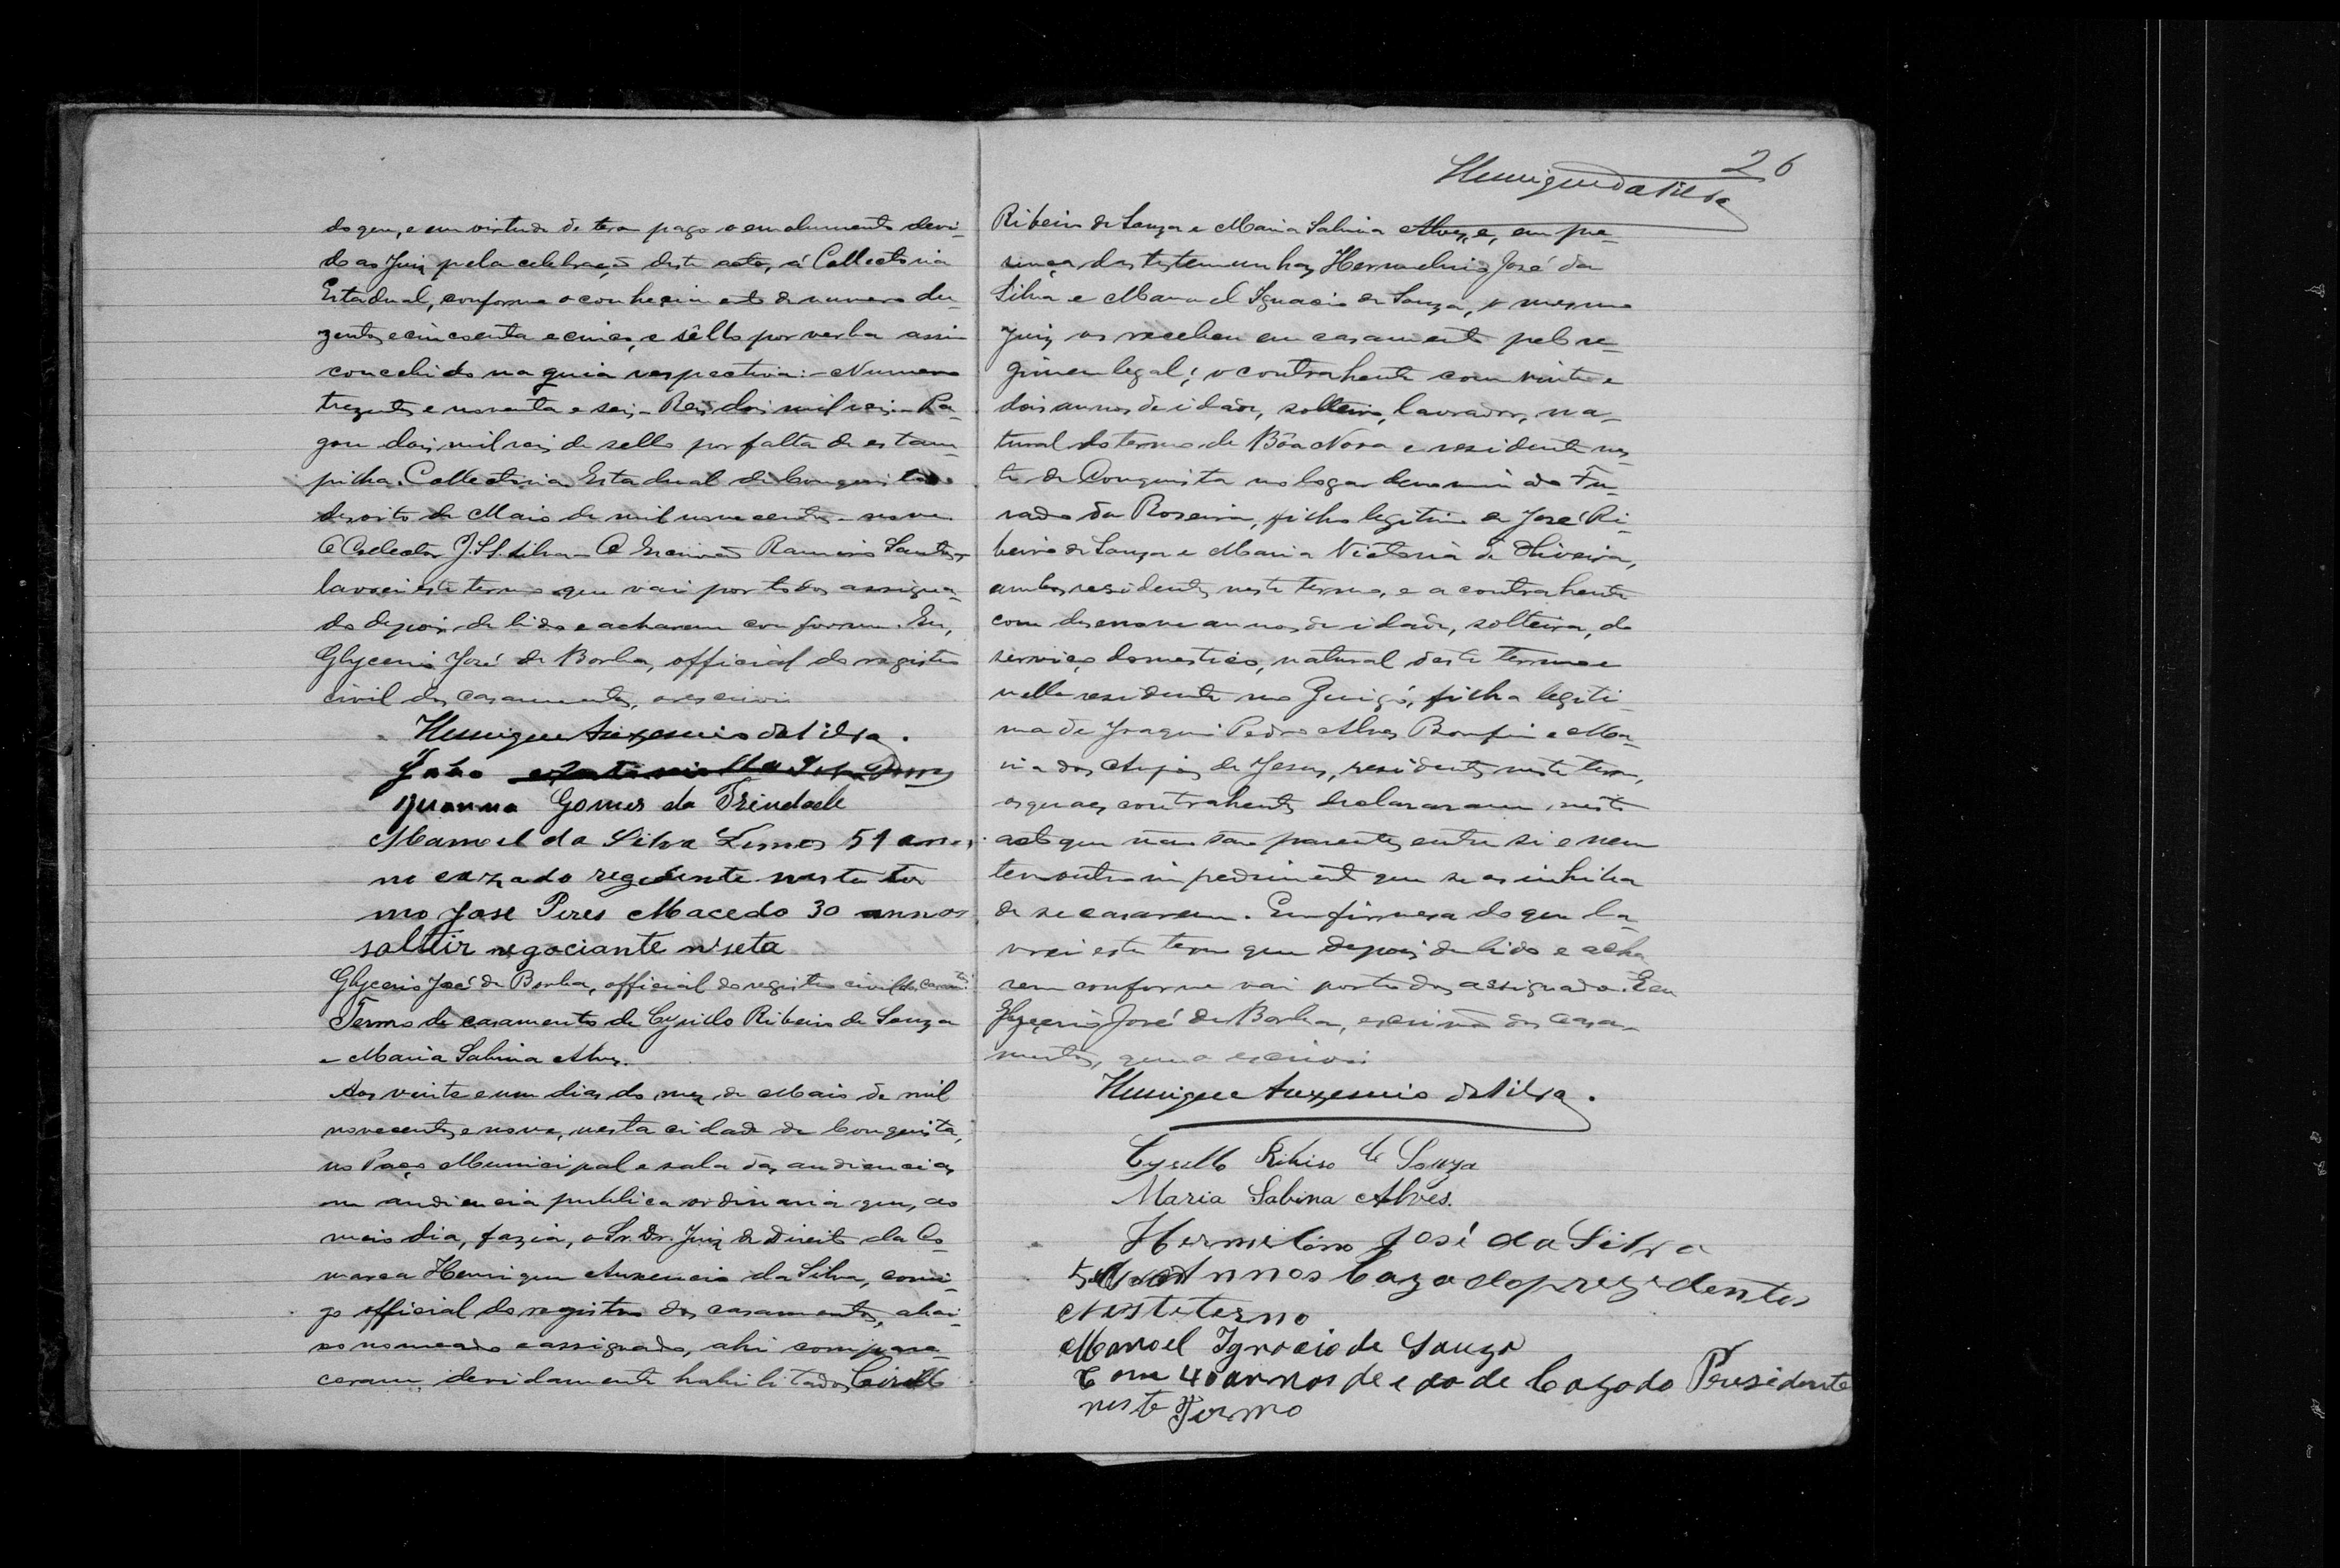 do que, e em virtude de tera pago o emolumento devi-
do ao Juiz pela celebração deste acto, á Collectoria
Estadual, conforme o conhecimento de numero du-
zentos e cincoenta e cinco, e sêllo por verba assim
concebido na guia respectiva: - Numero
trezentos e noventa e seis - Reis dois mil reis - Pa-
gou dois mil reis de sello por falta de estam-
pilha. Collectoria Estadual de Conquista
desoito de Maio de mil novecentos e nove
O Collector J. S. Silva - O Escrivão Ramiro Santos,
lavrei este termo que vai por todos assigna-
do depois de lido e acharem conforme. Eu,
Glycerio José de Borba, official do registro
civil dos casamentos, o escrivi
Henrique Auxencio da Silva.
João
Juanna Gomes da Trindade
Manoel da Silva Lemos 51 annos
no cazado rezedente neste ter
mo Jose Peres Macedo 30 annos
solteir negociante n'seta
Glycerio José de Borba, official do registro civil dos casamtos.
Termo de casamento de Cyrillo Ribeiro de Souza
e Maria Sabina Alves.
Aos vinte e um dias do mez de Maio de mil
novecentos e nove, nesta cidade de Conquista,
no Paço Municipal e sala das audiencias
em audiencia publica ordinaria que, ao
meio dia, fazia, o Sr. Dr. Juiz de Direito da Co-
marca Henrique Auxencio da Silva, comi-
go official do registro dos casamentos, abai-
xo nomeado e assignado, ahi compare-
ceram, devidamente habilitados, Cirillo
26
Henrique da Silva
Ribeiro de Souza e Maria Sabina Alves, e, em pre-
sença das testemunhas Hermelino José da
Silva e Manoel Ignacio de Souza, o mesmo
Juiz os recebeu em casamento pelo re-
gimen legal; o contrahente com vinte e
dois annos de idade, solteiro, lavrador, na-
tural do termo de Bôa Nova e residente nes-
te de Conquista no logar denominado Fu-
rado da Roseira, filho legitimo de José Ri-
beiro de Souza e Maria Victoria de Oliveira,
ambos residentes neste termo, e a contrahente
com desenove annos de idade, solteira, do
serviço domestico, natural deste termo e
nelle residente no Guigó, filha legiti-
ma de Joaquim Pedro Alves Bomfim e Ma-
ria dos Anjos de Jesus, residentes neste termo,
os quaes contrahentes declararam neste
acto que não são parentes entre si e nem
tem outro impedimento que se os inhiba
de se casarem. Em firmesa do que la-
vrei este termo que depois de lido e acha
rem conforme vai por todos assignado. E eu
Glycerio José de Borba, escrivão dos casa-
mentos, que o escrivi
Henrique Auxencio da Silva.
Cyrillo Ribiro de Souza
Maria Sabina Alves.
Hermelino José da Silva
Annos Cazado prezidentes
Nesteterno
Manoel Ignacio de Souza
Com 40 annos de edade Cazado Presidente
neste Termo